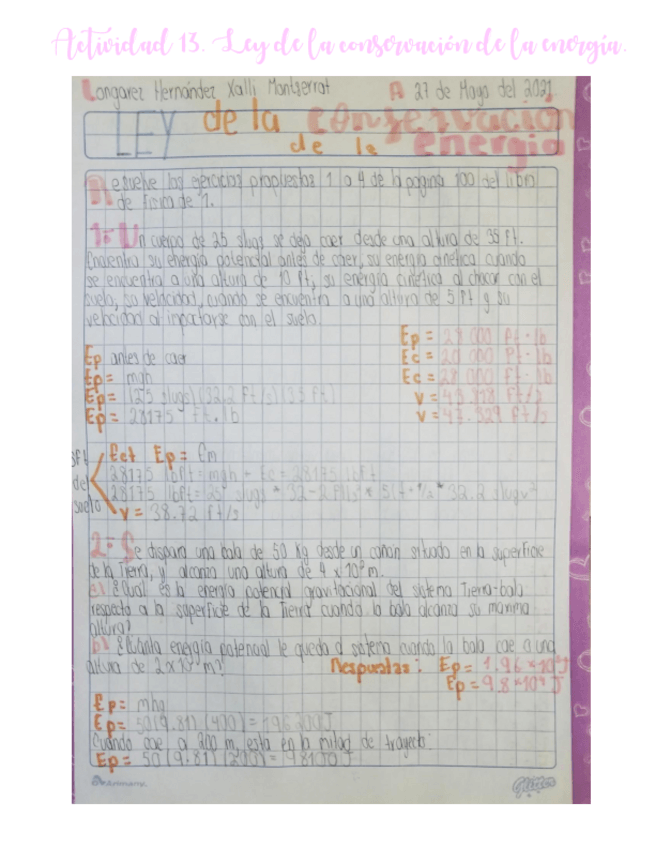 Actividad 13. Ley de la conservación de la energía.
Longarez Hernández Xalli Montserrat A 27 de Mayo del 2021
LEY de la conservación
de la energía
Resuelve los ejercicios propuestos 1 a 4 de la página 100 del libro
de física de 1.
1: Un cuerpo de 25 slugs se deja caer desde una altura de 35 ft.
Encuentra su energía potencial antes de caer, su energía cinética cuando
se encuentra a una altura de 10 ft, su energía cinética al chocar con el
suelo, su velocidad cuando se encuentra a una altura de 5 ft y su
velocidad al impactarse con el suelo.
Ep = 28 000 ft·lb
Ec = 20 000 ft·lb
Ec = 28 000 ft·lb
v =
v = 47.329 ft/s
Ep antes de caer
Ep = mgh
Ep = (25 slugs) (32.2 ft/s) (35 ft)
Ep = 28175 ft.lb
5ft
del
suelo
Ec+ Ep = Em
28175 lbft = mgh + Ec = 28175 lbft
28175 lbft =
v = 38.72 ft/s
2: Se dispara una bala de 50 kg desde un cañón situado en la superficie
de la Tierra, y alcanza una altura de 4 x 10² m.
a) ¿Cuál es la energía potencial gravitacional del sistema Tierra-bala
respecto a la superficie de la Tierra cuando la bala alcanza su máxima
altura?
b) ¿Cuánta energía potencial le queda al sistema cuando la bala cae a una
altura de 2x10² m?
Respuestas: Ep = 1.96
Ep = 9.8
Ep = mhg
Ep = 50(9.81)(400) = 196 200J
Cuando cae a 200 m, esta en la mitad de trayecto:
Ep = 50 (9.81)(200) = 98100 J